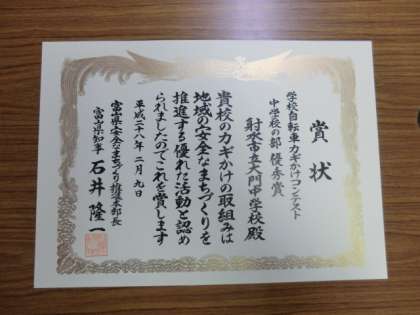 賞状
学校自転車カギかけコンテスト
中学校の部 優秀賞
射水市立大門中学校殿
貴校のカギかけの取組みは
地域の安全なまちづくりを
推進する優れた活動と認め
られましたのでこれを賞します
平成二十八年二月九日
富山県安全なまちづくり推進本部長
富山県知事 石井隆一